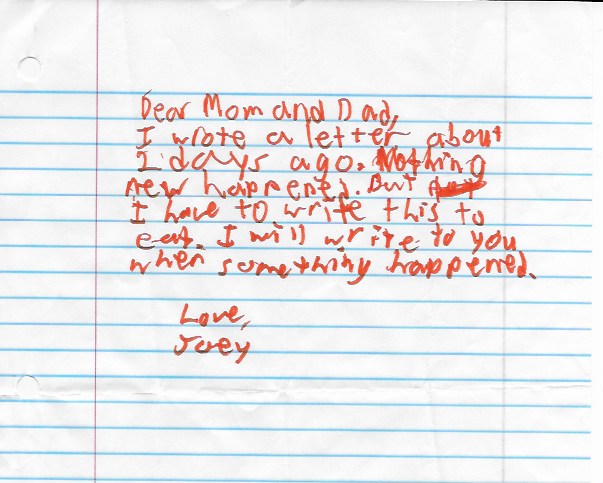 Dear Mom and Dad,
I wrote a letter about
2 days ago. Nothing
new happened. But
I have to write this to
eat. I will write to you
when something happened.
Love,
Joey